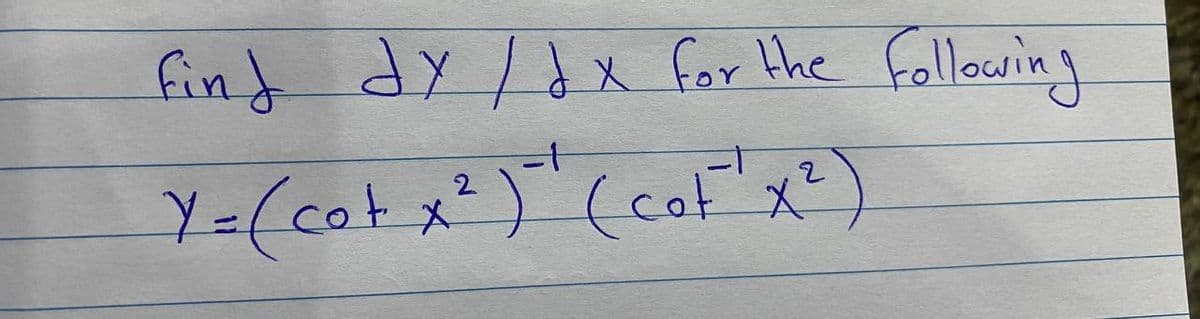 find dy / dx for the following
y = (cot x²)⁻¹ (cot⁻¹ x²)